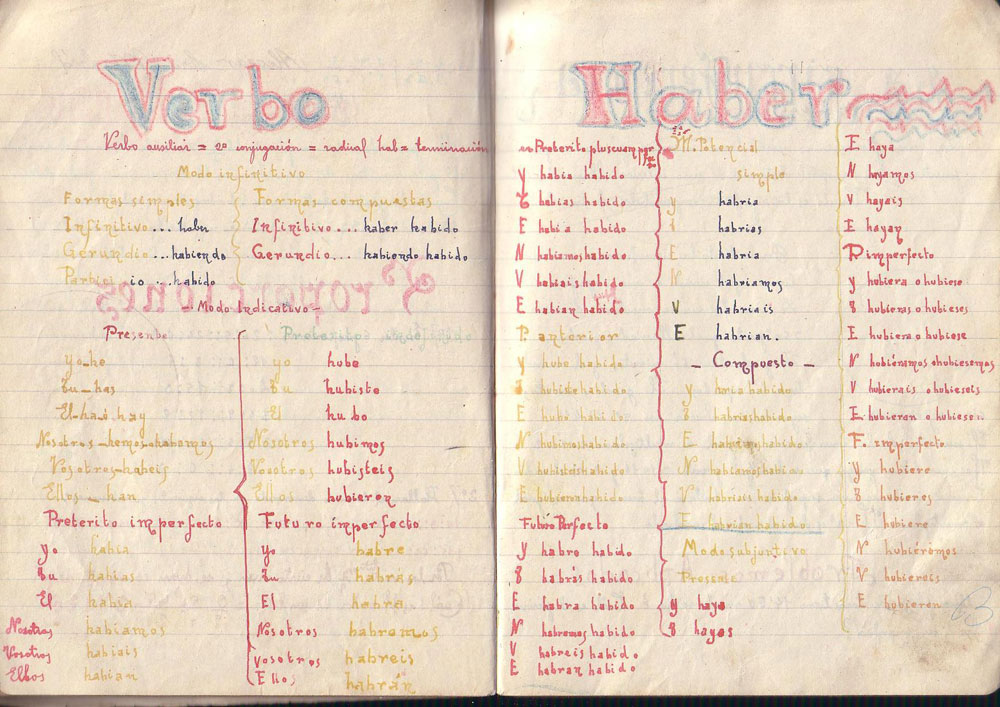 Verbo
Verbo auxiliar = 2º conjugación = radical hab = terminación
Modo infinitivo
Formas simples
Infinitivo... haber
Gerundio... habiendo
habido
Formas compuestas
Infinitivo... haber habido
Gerundio... habiendo habido
- Modo Indicativo -
Presente
yo-he
tu-has
El-ha-ó-hay
Nosotros-hemos-habemos
Vosotros-habeis
Ellos-han
Preterito imperfecto
yo habia
tu habias
El habia
Nosotros habiamos
Vosotros habiais
Ellos habian
Preterito
yo hube
tu hubiste
El hubo
Nosotros hubimos
Vosotros hubisteis
Ellos hubieron
Futuro imperfecto
yo habre
tu habrás
El habra
Nosotros habremos
vosotros habreis
Ellos habrán
Haber
Preterito pluscuamper
y habia habido
t habias habido
E habia habido
N habiamos habido
V habiais habido
E habian habido
P. anterior
y hube habido
t hubiste habido
E hubo habido
N hubimos habido
V hubisteis habido
E hubieron habido
Futuro Perfecto
y habre habido
t habrás habido
E habra habido
N habremos habido
V habreis habido
E habran habido
M. Potencial
simple
y habria
t habrias
E habria
N habriamos
V habriais
E habrian.
- Compuesto -
y habido
t habrias habido
E habido
N habido
V habriais habido
E habrian habido
Modo subjuntivo
Presente
y haya
t hayas
E haya
N hayamos
V hayais
E hayan
P imperfecto
y hubiera o hubiese
t hubieras o hubieses
E hubiera o hubiese
N hubiéramos o hubiesemos
V hubierais o hubieseis
E hubieran o hubiesen
F. imperfecto
y hubiere
t hubieres
E hubiere
N hubiéremos
V hubiereis
E hubieren
B